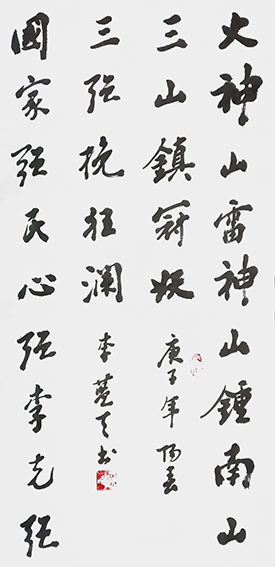 火神山雷神山鍾南山
三山鎮冠妖
庚子年阳春
三强挽狂澜
李 天书
國家强民心强李克强